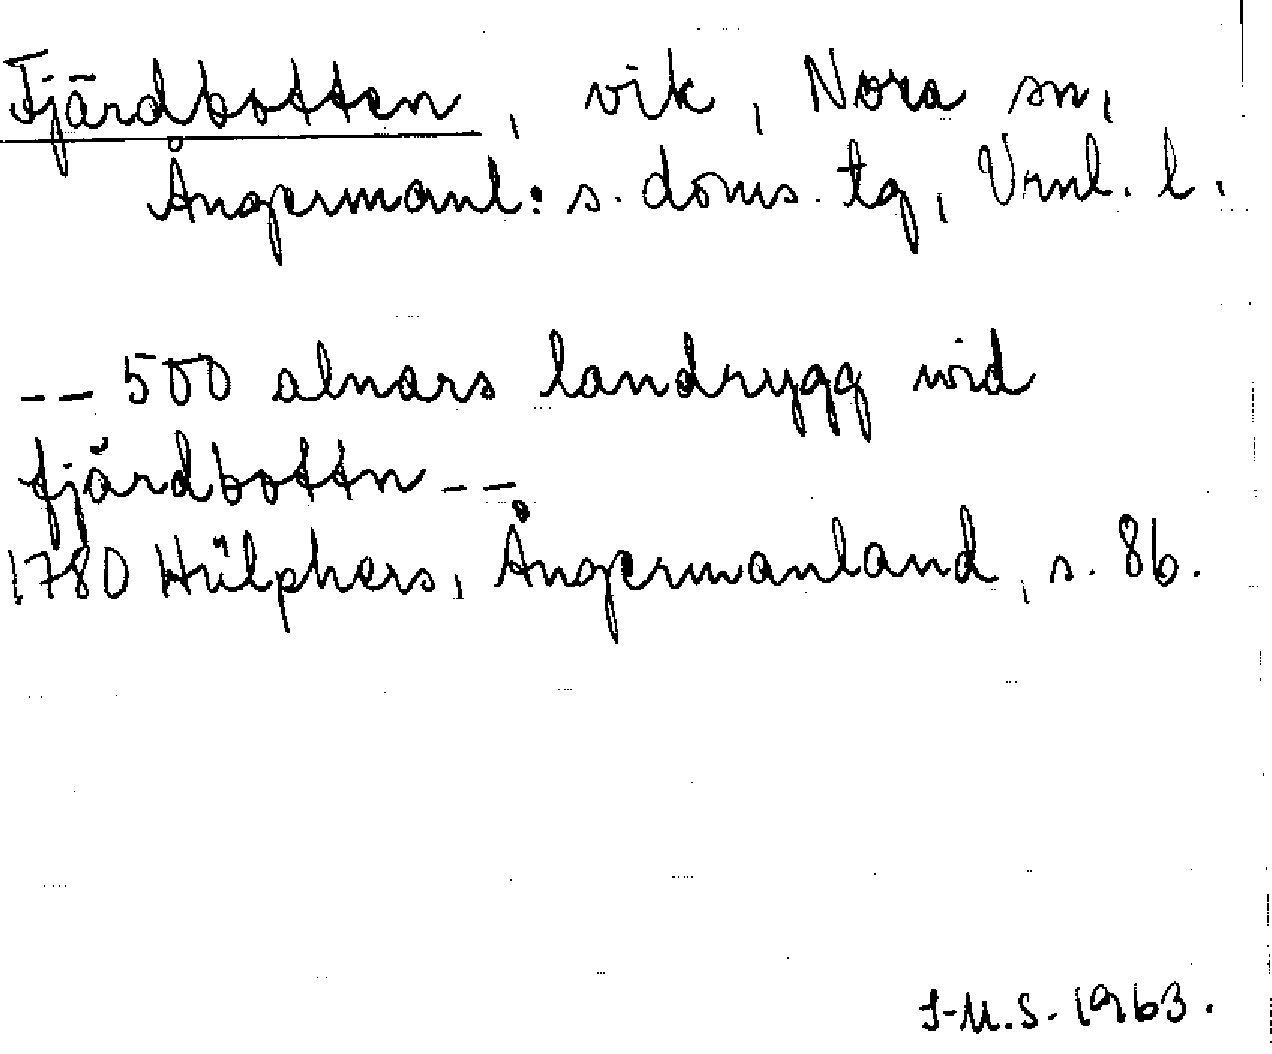 Fjärdbotten, vik, Nora sn,
Ångermanl:s. doms. tg, Vrnl. l.
-- 500 alnars landrygg wid
fjärdbottn --
1780 Hülphers, Ångermanland, s. 86.
I-M.S. 1963.